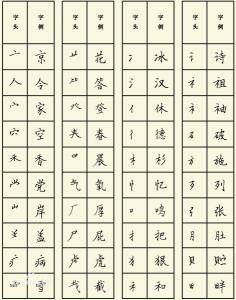 字头 字例 字头 字例 字头 字例 字头 字例
亠 京 艹 花 冫 冰 讠 诗
人 令 ⺮ 答 氵 汉 礻 祖
宀 家 癶 登 亻 休 衤 袖
穴 空 𡗗 春 彳 德 石 破
禾 香 日 晨 木 杉 方 施
党 气 氧 忄 忆 歹 列
山 岸 厂 厚 口 鸣 弓 张
盖 尸 屁 扌 把 月 肚
疒 病 虍 虎 犭 狠 贝 贮
雪 𢦏 截 禾 和 田 畔